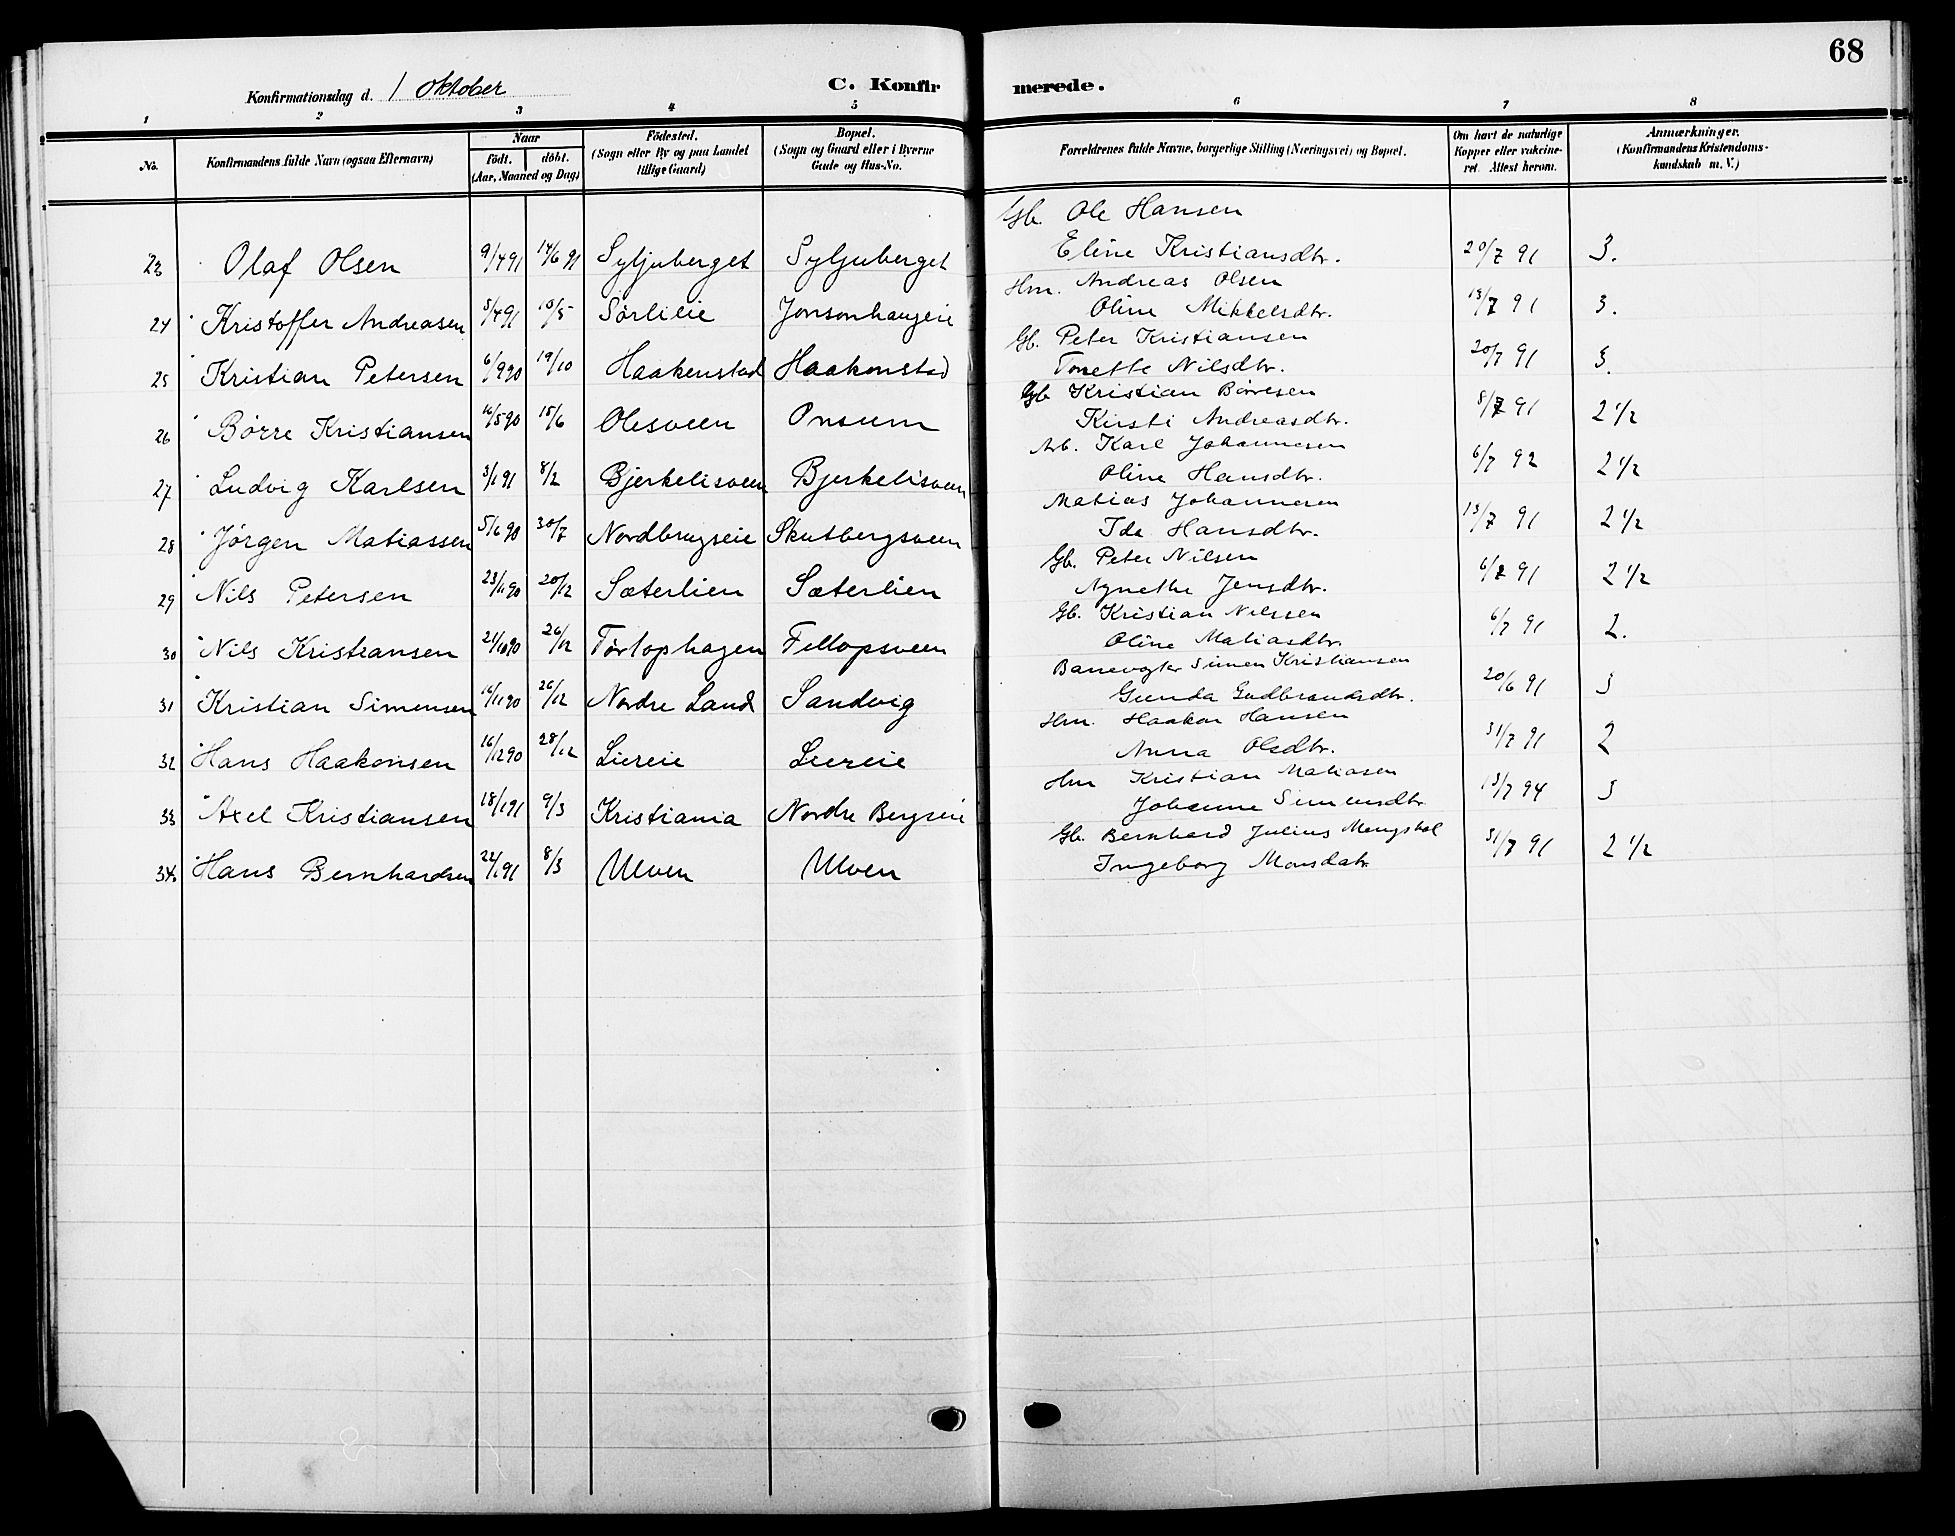 68
Konfirmationsdag d. 1 oktober C. Konfirmerede.
1 2 3 4 5 6 7 8
No. Konfirmandens fulde Navn (ogsaa Efternavn) Naar födt. döbt. (Aar, Maaned og Dag) Födested. (Sogn eller By og paa Landet tillige Gaard) Bopæl. (Sogn og Gaard eller i Byerne Gade og Hus-No. Forældrenes fulde Navne, borgerlige Stilling (Næringsvei) og Bopæl. Om havt de naturlige Kopper eller vakcineret. Attest herom. Anmærkninger. (Konfirmandens Kristendomskundskab m. V.)
Gb. Ole Hansen
23 Olaf Olsen 9/4 91 14/6 91 Syljuberget Syljuberget Eline Kristiansdtr. 20/7 91 3.
Hm. Andreas Olsen
24 Kristoffer Andreasen 5/4 91 10/5 Sörlieie Jonsonhaugeie Oline Mikkelsdtr. 13/7 91 3.
Gb. Peter Kristiansen
25 Kristian Petersen 6/9 90 19/10 Haakenstad Haakonstad Tonette Nilsdtr. 20/7 91 3.
Gb Kristian Börresen
26 Börre Kristiansen 16/5 90 15/6 Olesveen Onsum Kirsti Andreasdtr. 8/7 91 2 1/2
Arb. Karl Johannesen
27 Ludvig Karlsen 3/1 91 8/2 Bjerkelisveen Bjerkelisveen Oline Hansdtr. 6/7 92 2 1/2
Matias Johannesen
28 Jörgen Matiassen 5/6 90 30/7 Nordbrugseie Skutbergsveen Ida Hansdtr. 13/7 91 2 1/2
Gb. Peter Nilsen
29 Nils Petersen 23/11 90 20/12 Sæterlien Sæterlien Agnethe Jensdtr. 6/7 91 2 1/2
Gb. Kristian Nilssen
30 Nils Kristiansen 21/10 90 26/12 Törtophagen Fellopsveen Oline Matiasdtr. 6/7 91 2.
Banevogter Simen Kristiansen
31 Kristian Simensen 16/11 90 26/12 Nordre Land Sandvig Gunda Gudbrandsdtr. 20/6 91 3
Hm. Haakon Hansen
32 Hans Haakonsen 16/12 90 28/12 Liereie Liereie Anna Olsdtr. 31/7 91 2
Hm Kristian Matiasen
33 Axel Kristiansen 18/1 91 9/3 Kristiania Nordre Bergseie Johanne Simensdtr 13/7 94 3
Gb. Bernhard Julius Mengshol
34 Hans Bernhardsen 22/1 91 8/3 Ulven Ulven Ingeborg Monsdatr 31/7 91 2 1/2